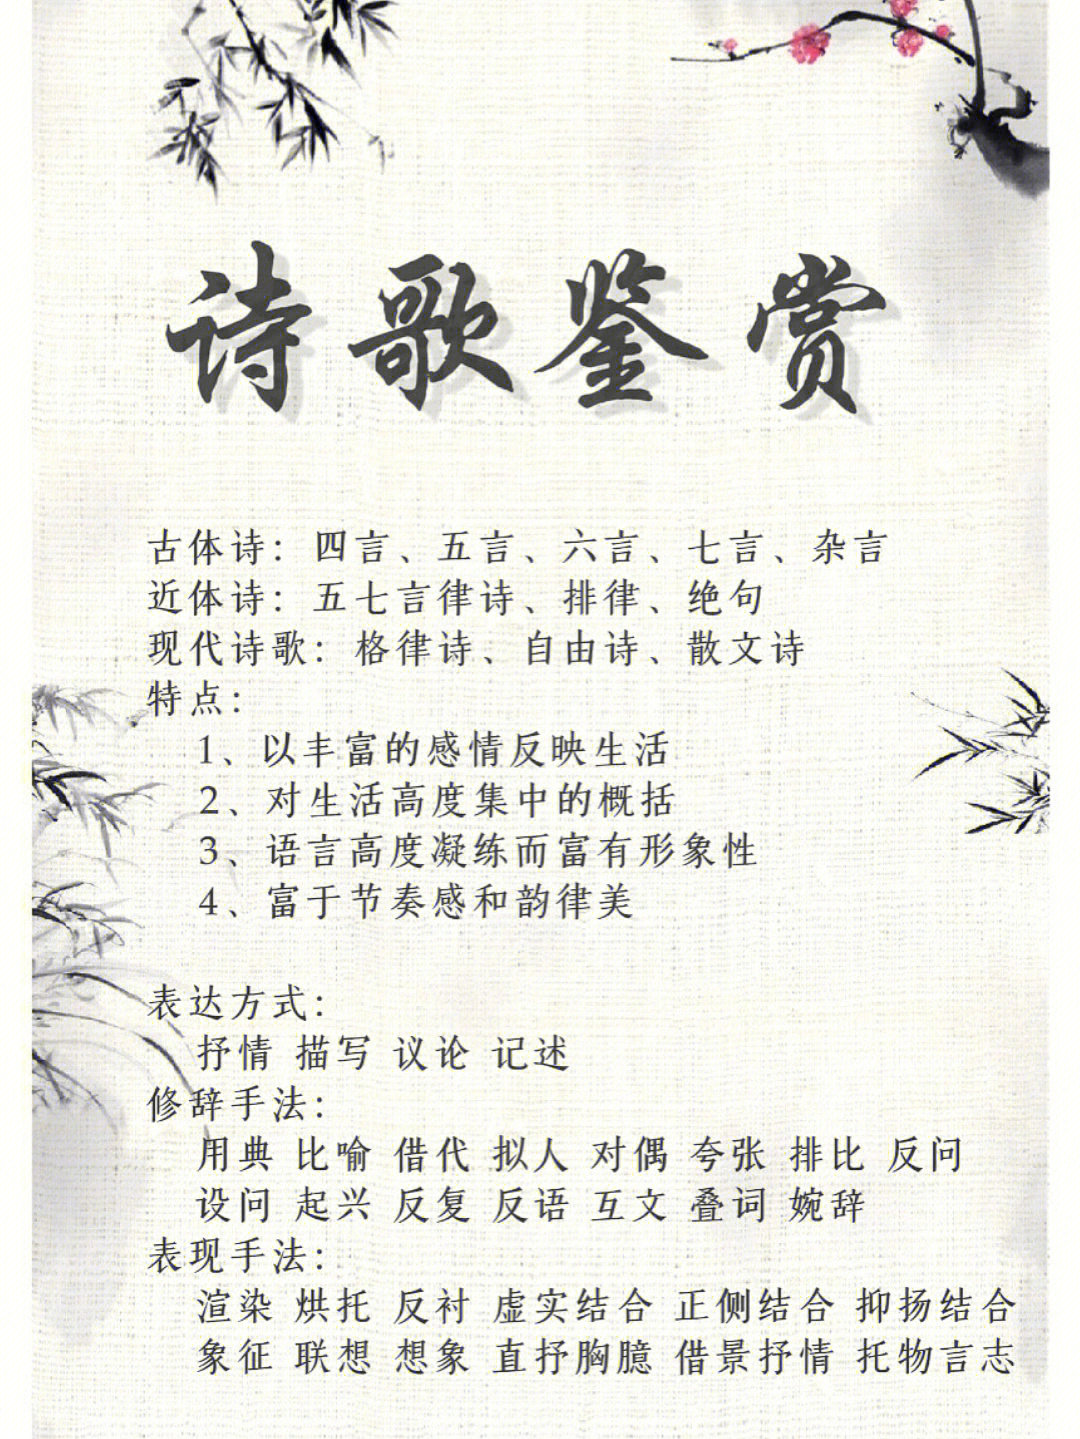 诗歌鉴赏
古体诗：四言、五言、六言、七言、杂言
近体诗：五七言律诗、排律、绝句
现代诗歌：格律诗、自由诗、散文诗
特点：
1、以丰富的感情反映生活
2、对生活高度集中的概括
3、语言高度凝练而富有形象性
4、富于节奏感和韵律美
表达方式：
抒情 描写 议论 记述
修辞手法：
用典 比喻 借代 拟人 对偶 夸张 排比 反问
设问 起兴 反复 反语 互文 叠词 婉辞
表现手法：
渲染 烘托 反衬 虚实结合 正侧结合 抑扬结合
象征 联想 想象 直抒胸臆 借景抒情 托物言志